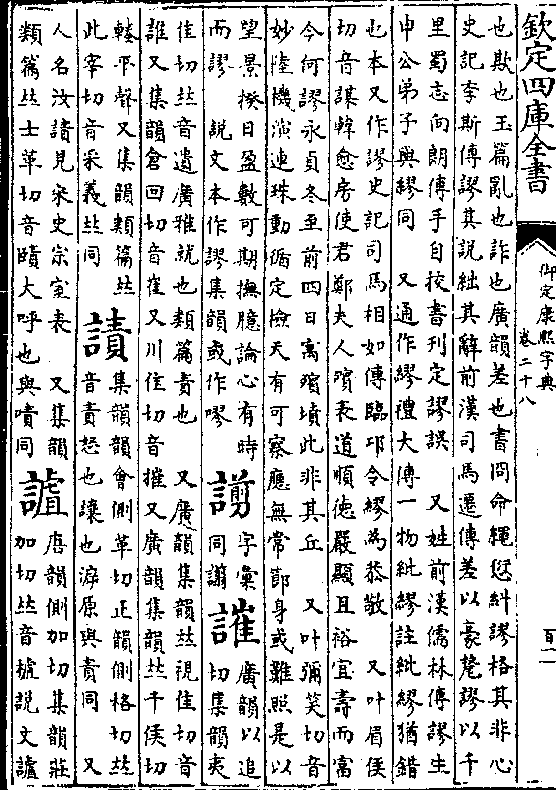 欽定四庫全書
御定康熙字典
卷二十八
百二
也欺也玉篇亂也詐也廣韻差也書冏命繩愆糾謬格其非心
史記李斯傳謬其說絀其辭前漢司馬遷傳差以豪氂謬以千
里蜀志向朗傳手自挍書刊定謬誤 又姓前漢儒林傳謬生
申公弟子與繆同 又通作繆禮大傳一物紕繆註紕繆猶錯
也本又作謬史記司馬相如傳臨邛令繆為恭敬 又叶眉侯
切音謀韓愈房使君鄭夫人殯表道順德嚴顯且裕宜壽而富
今何謬永貞冬至前四日寓殯墳此非其丘 又叶彌笑切音
妙陸機演連珠動循定檢天有可察應無常節身或難照是以
望景揆日盈數可期撫臆論心有時
而謬 說文本作謬集韻或作嘐
謭
字彙
同譾
䜅
廣韻以追
切集韻夷
佳切𠀤音遺廣雅就也類篇責也 又廣韻集韻𠀤視佳切音
誰又集韻倉回切音崔又川佳切音摧又廣韻集韻𠀤千侯切
輳平聲又集韻類篇𠀤
此宰切音采義𠀤同
謮
集韻韻會側革切正韻側格切𠀤
音責怒也讓也源與責同 又
人名汝謮見宋史宗室表 又集韻
類篇𠀤士革切音賾大呼也與嘖同
謯
唐韻側加切集韻莊
加切𠀤音摣說文謯